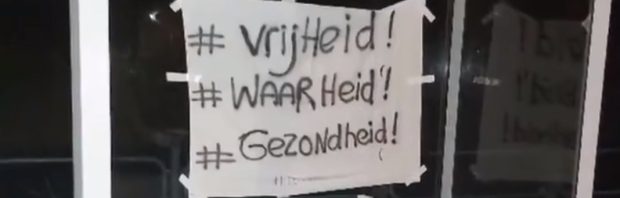 # VrijHeid!
# WAARHeid'!
# GeZoNdheid!